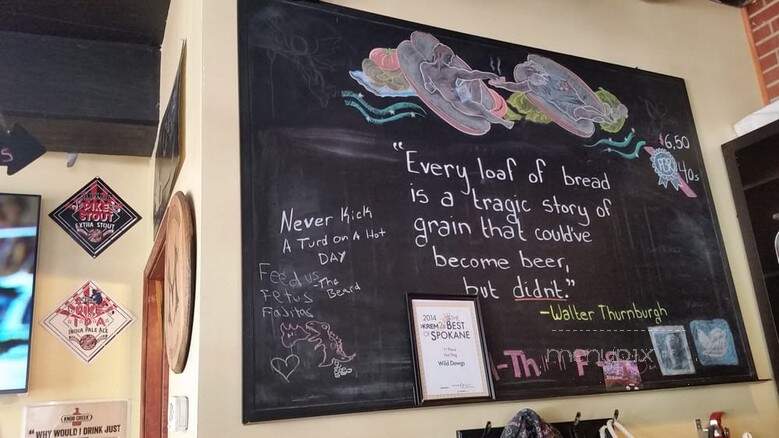 $6.50
PBR
40s
"Every loaf of bread
is a tragic story of
grain that could've
become beer,
but didnt."
-Walter Thurnburgh
Never Kick
A Turd on A Hot
DAY
-The
Beard
Feed us
Fetus
Fajitas
2014
KREM THE BEST
OF SPOKANE
1st Place
Hot Dog
Wild Dawgs
-Th
F
menupix
PIKE
STOUT
EXTRA STOUT
PIKE
IPA
INDIA PALE ALE
KNOB CREEK
"WHY WOULD I DRINK JUST
S